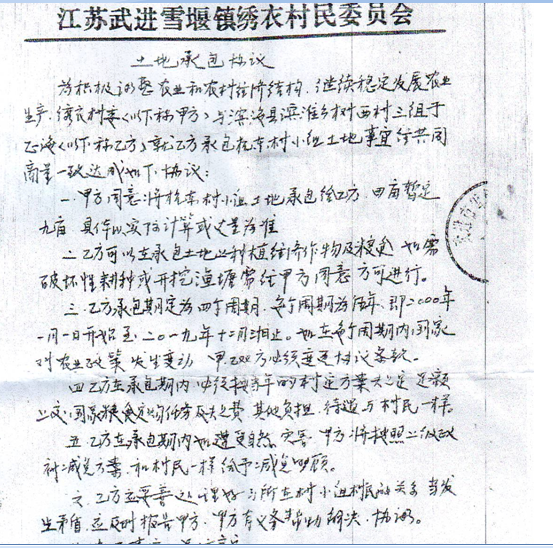 江苏武进雪堰镇绣衣村民委员会
土地承包协议
为积极调整农业和农村经济结构，继续稳定发展农业
生产，绣衣村委（以下称甲方）与滨海县滨淮乡树西村三组于
正海（以下称乙方）就乙方承包杭东村小组土地事宜经共同
商量一致达成如下协议：
一、甲方同意将杭东村小组土地承包给乙方，田亩暂定
九亩，具体以实际计算或丈量为准
二、乙方可以在承包土地上种植经济作物及粮食，如需
破坏性耕种或开挖渔塘需经甲方同意方可进行。
三、乙方承包期定为四个周期，每个周期为伍年，即二000年
一月一日开始至二0一九年十二月止。如在每个周期内，国家
对农业政策发生变动，甲乙双方必须重定协议条款。
四、乙方在承包期内必须按当年的村定方案规定足额
上交国家粮食定购任务及规费，其他负担，待遇与村民一样。
五、乙方在承包期内如遭受自然灾害，甲方将按照上级政
府减免方案，和村民一样给予减免照顾。
六、乙方应妥善处理好与所在村小组村民的关系，当发
生矛盾，应及时报告甲方，甲方有义务帮助解决，协调。